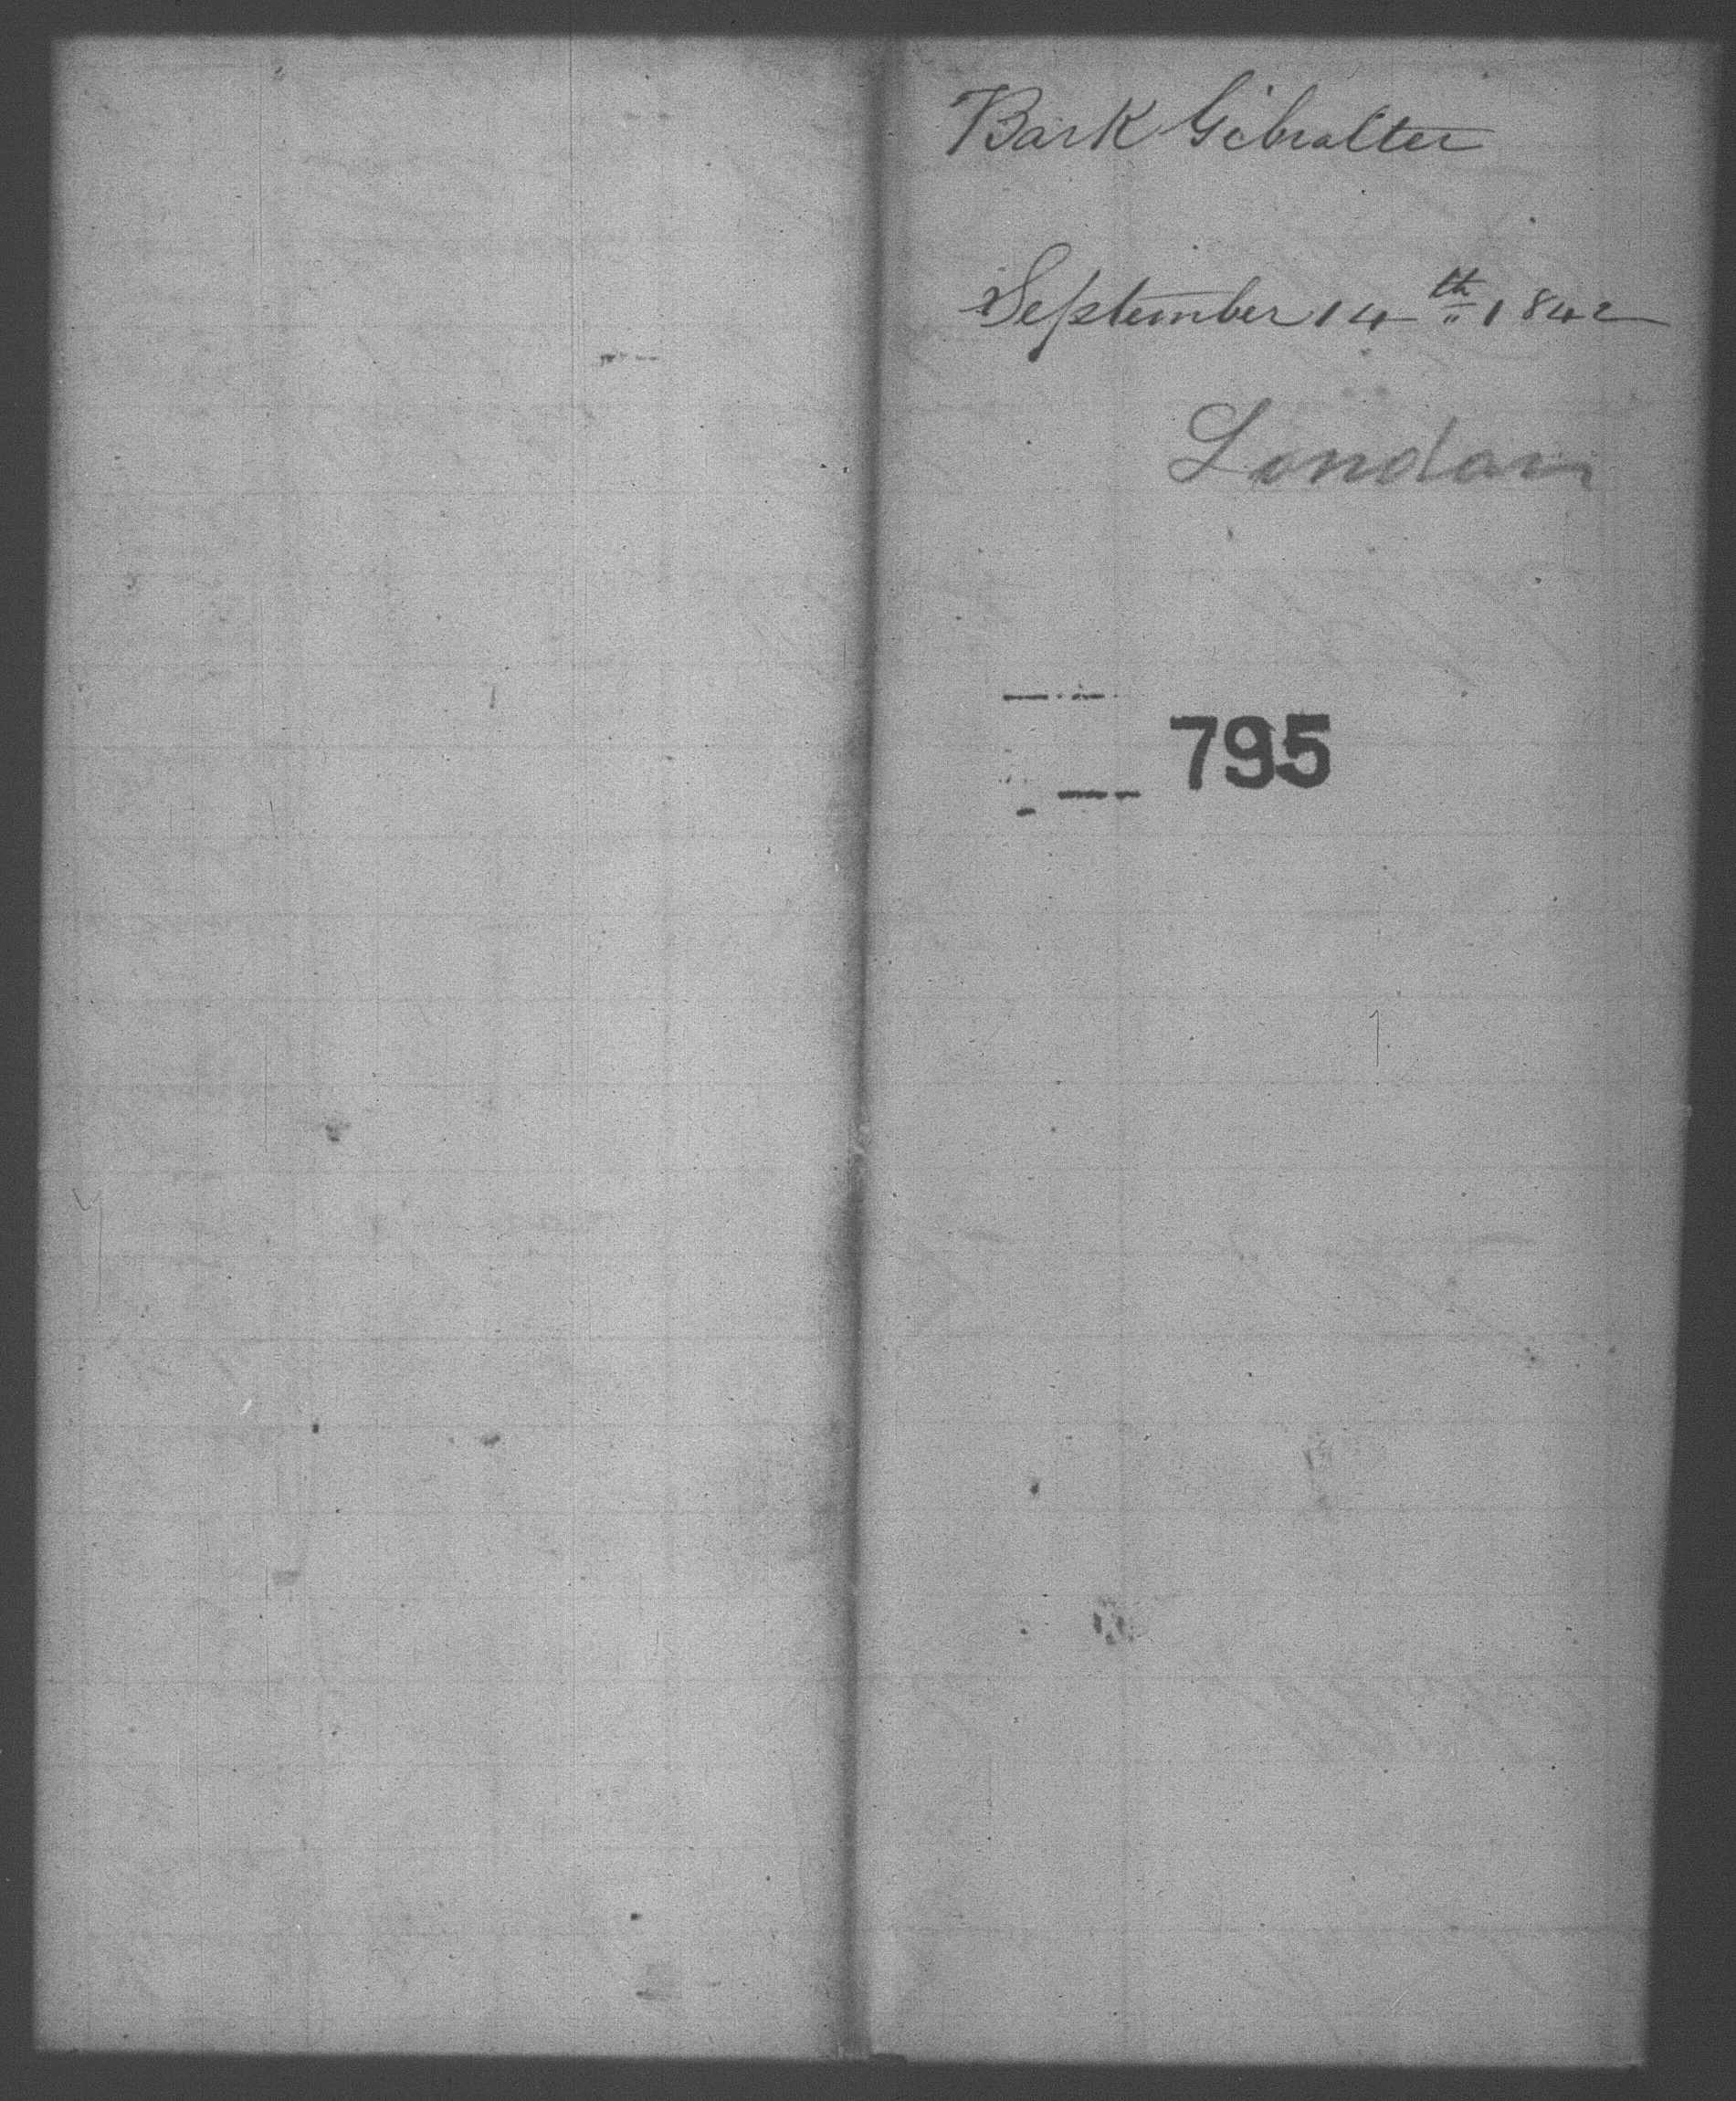 Bark Gibralter
September 14th 1842
London
795